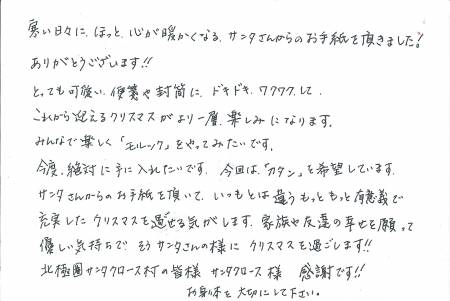 寒い日々に、ほっと、心が暖かくなる、サンタさんからのお手紙を頂きました!
ありがとうございます!!
とっても可愛い、便箋や封筒に、ドキドキ、ワクワク、して、
これから迎えるクリスマスがより一層、楽しみになります。
みんなで楽しく「モルック」をやってみたいです。
今度、絶対に手に入れたいです。今回は、「カタン」を希望しています。
サンタさんからのお手紙を頂いて、いつもとは違うもっともっと有意義で
充実したクリスマスを過ごせる気がします。家族や友達の幸せを願って
優しい気持ちで そうサンタさんの様に クリスマスを過ごします!!
北極圏サンタクロース村の皆様 サンタクロース様 感謝です!!
お身体を大切にして下さい。